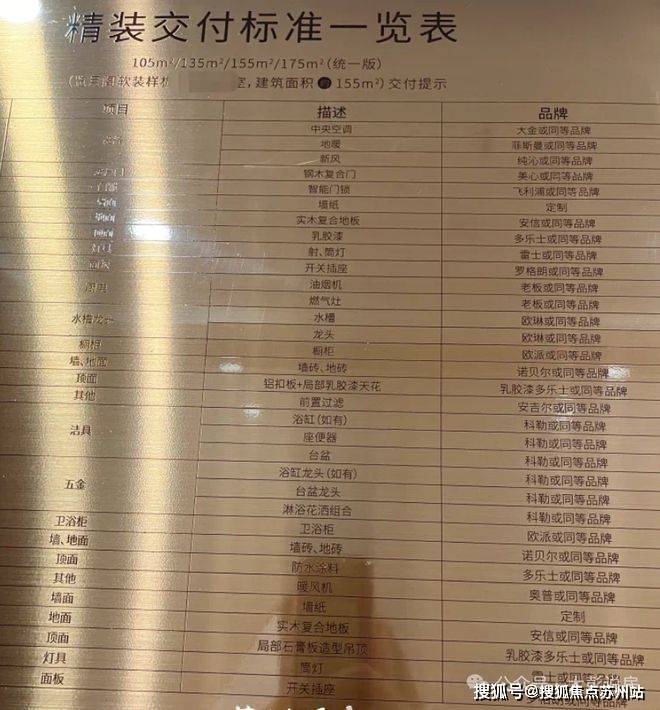 精装交付标准一览表
105m²/135m²/155m²/175m²(统一版)
建筑面积 155m²)交付提示
项目 描述 品牌
中央空调 大金或同等品牌
地暖 菲斯曼或同等品牌
新风 纯沁或同等品牌
钢木复合门 美心或同等品牌
智能门锁 飞利浦或同等品牌
墙纸 定制
实木复合地板 安信或同等品牌
乳胶漆 多乐士或同等品牌
射、筒灯 雷士或同等品牌
开关插座 罗格朗或同等品牌
油烟机 老板或同等品牌
燃气灶 老板或同等品牌
水槽龙头 水槽 欧琳或同等品牌
龙头 欧琳或同等品牌
橱柜 橱柜 欧派或同等品牌
墙、地面 墙砖、地砖 诺贝尔或同等品牌
顶面 铝扣板+局部乳胶漆天花 乳胶漆多乐士或同等品牌
其他 前置过滤 安吉尔或同等品牌
洁具 浴缸(如有) 科勒或同等品牌
座便器 科勒或同等品牌
台盆 科勒或同等品牌
五金 浴缸龙头(如有) 科勒或同等品牌
台盆龙头 科勒或同等品牌
淋浴花洒组合 科勒或同等品牌
卫浴柜 卫浴柜 欧派或同等品牌
墙、地面 墙砖、地砖 诺贝尔或同等品牌
顶面 防水涂料 多乐士或同等品牌
其他 暖风机 奥普或同等品牌
墙面 墙纸 定制
地面 实木复合地板 安信或同等品牌
顶面 局部石膏板造型吊顶 乳胶漆多乐士或同等品牌
灯具 筒灯
面板 开关插座
搜狐号@搜狐焦点苏州站